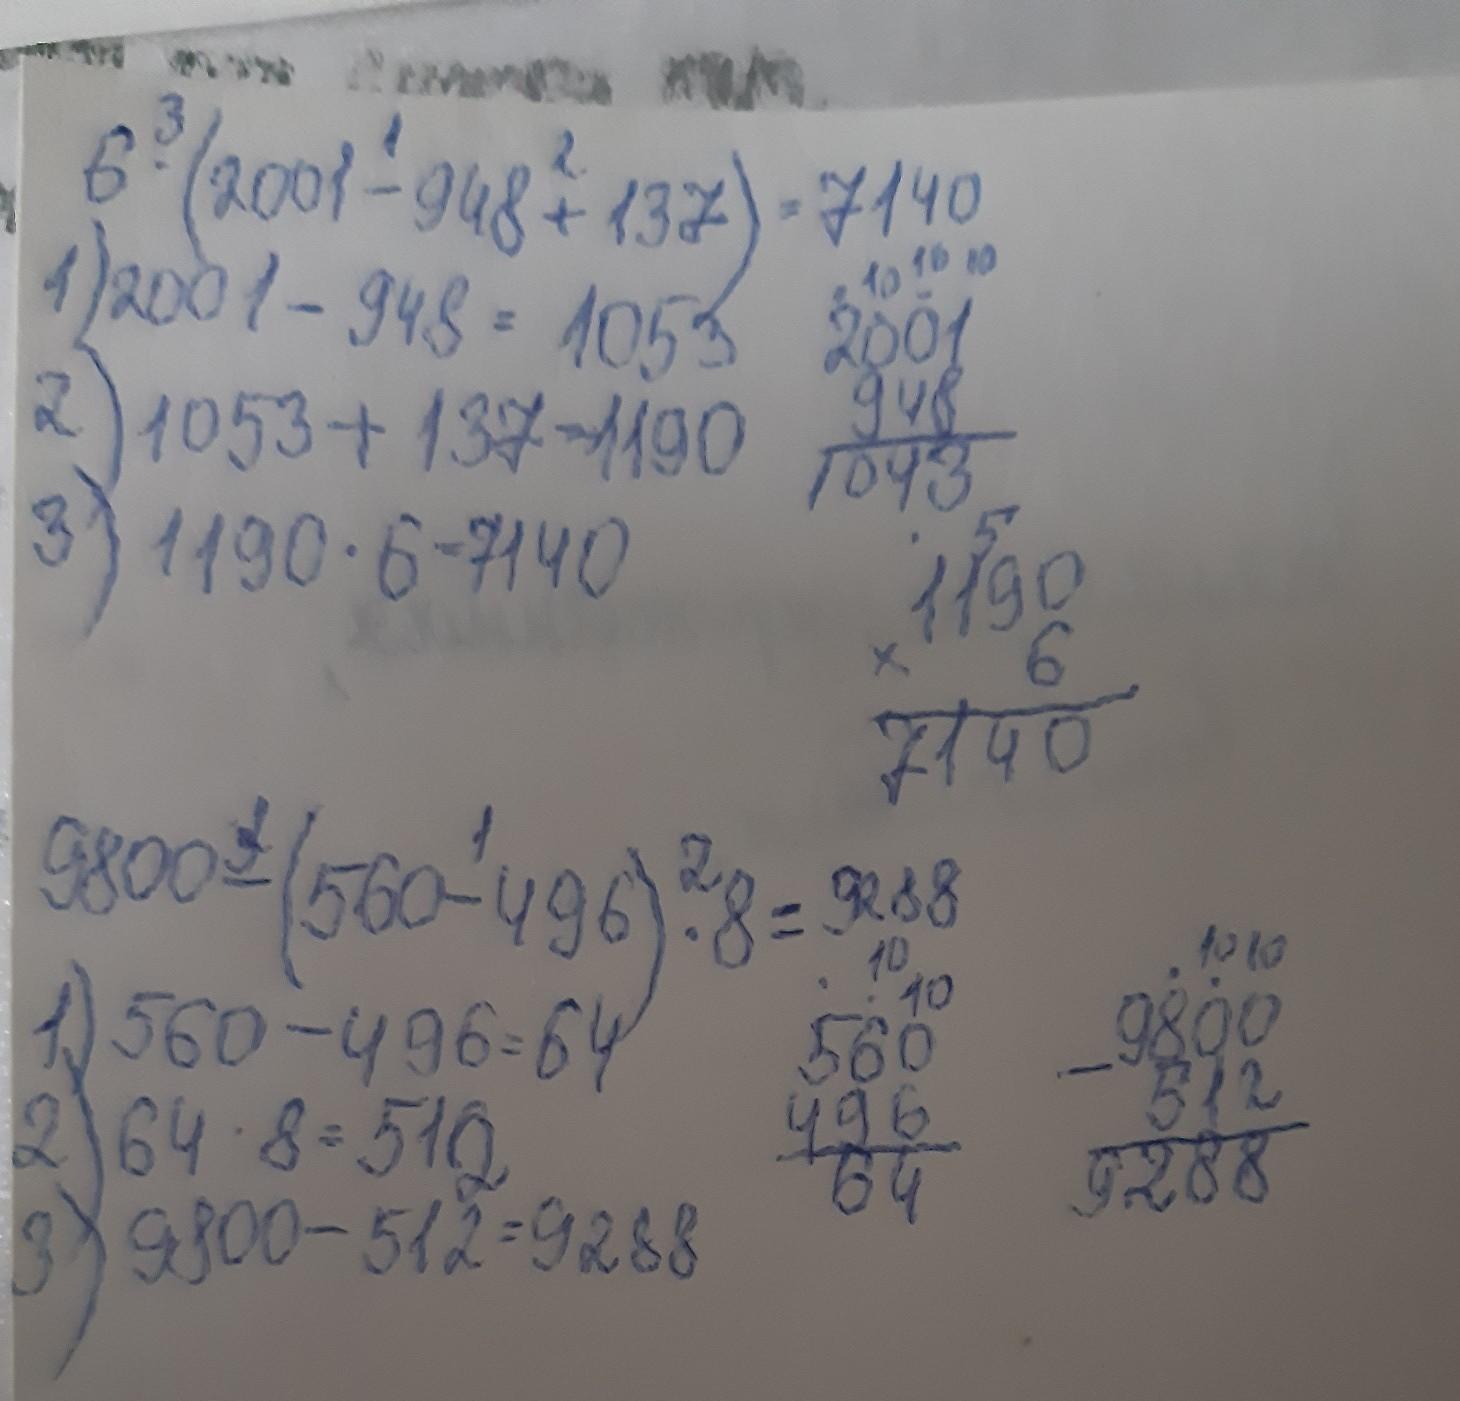 6 · (2001 - 948 + 137) = 7140
1) 2001 - 948 = 1053
2) 1053 + 137 = 1190
3) 1190 · 6 = 7140
10 10 10
2001
948
1043
5
1190
× 6
7140
9800 - (560 - 496) · 8 = 9288
1) 560 - 496 = 64
2) 64 · 8 = 512
3) 9800 - 512 = 9288
10
10
560
496
64
10 10
9800
- 512
9288